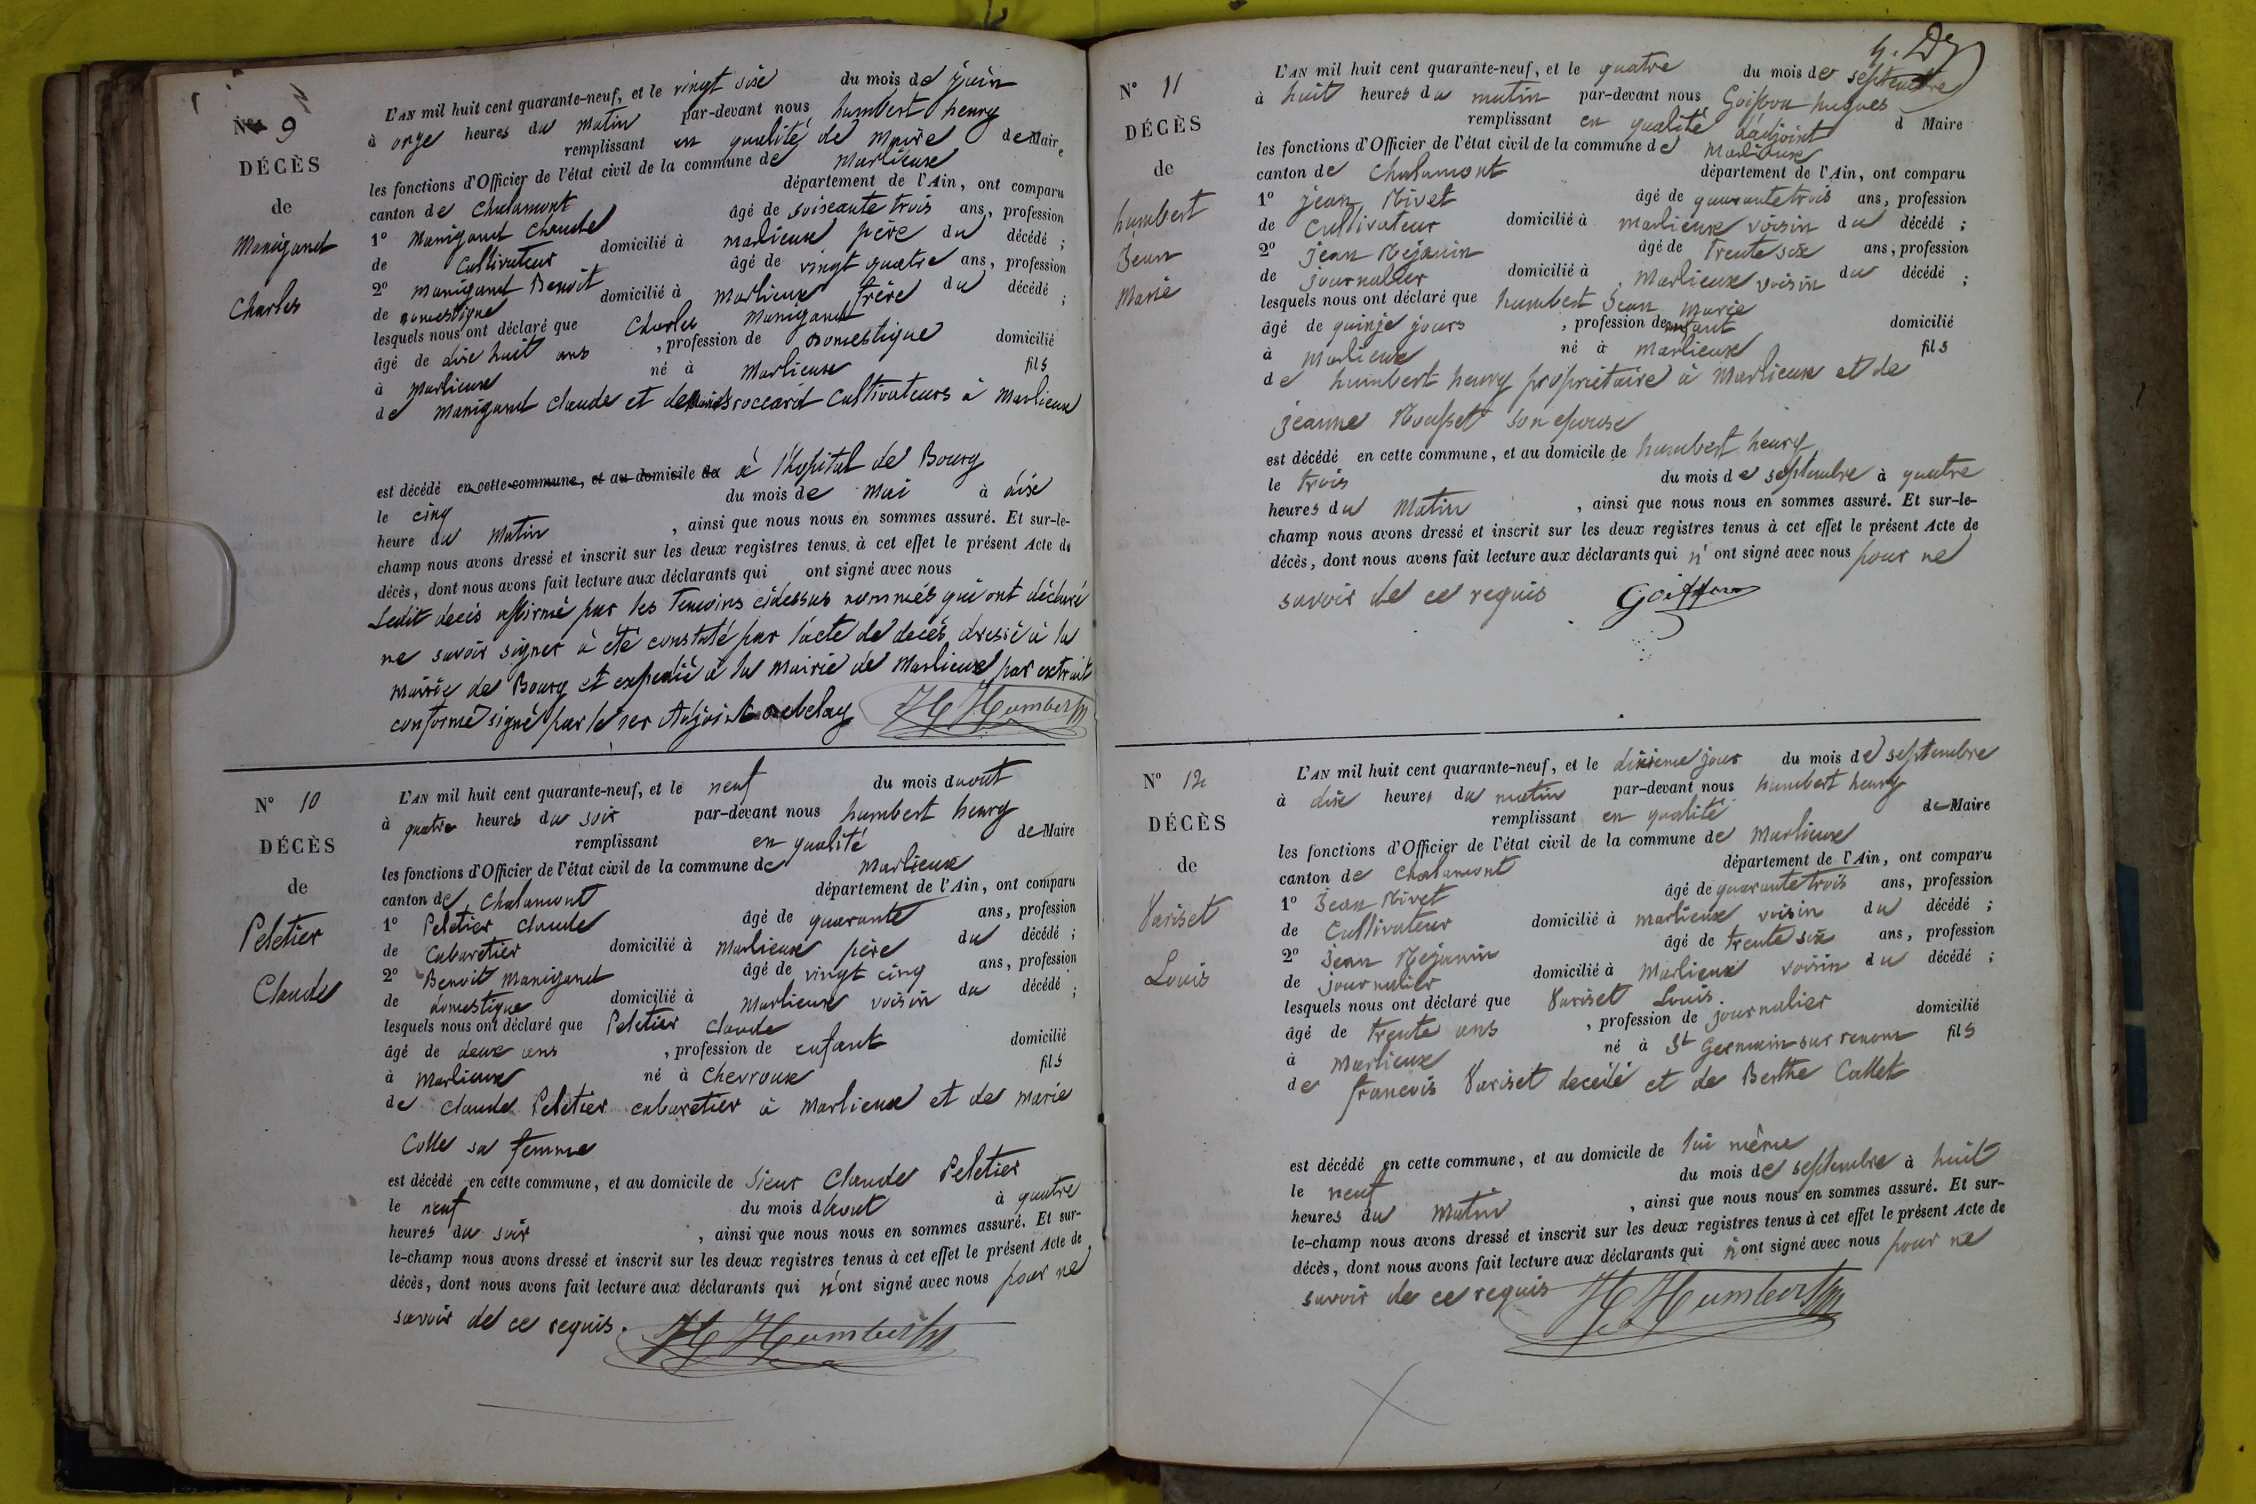 N° 9
DÉCÈS
de
Manigand
Charles
L'AN mil huit cent quarante-neuf, et le vingt six du mois de juin
à onze heures du matin par-devant nous humbert henry
remplissant en qualité de maire de Maire
les fonctions d'Officier de l'état civil de la commune de Marlieux
canton de Chalamont département de l'Ain, ont comparu
1° Manigand Claude âgé de soixante trois ans, profession
de Cultivateur domicilié à marlieux père du décédé ;
2° manigand Benoit âgé de vingt quatre ans, profession
de domestique domicilié à marlieux frère du décédé ;
lesquels nous ont déclaré que Charles Manigand
âgé de dixe huit ans , profession de domestique domicilié
à marlieux né à Marlieux fils
de manigand claude et de roccard Cultivateurs à Marlieux
est décédé en cette commune, et au domicile de à l'hopital de Bourg
le cinq du mois de mai à dixe
heure du Matin , ainsi que nous nous en sommes assuré. Et sur-le-
champ nous avons dressé et inscrit sur les deux registres tenus à cet effet le présent Acte de
décès, dont nous avons fait lecture aux déclarants qui ont signé avec nous
Ledit decés affirmé par les Temoins cidessus nommés qui ont déclaré
ne savoir signer à été constaté par l'acte de decés dressé à la
mairie de Bourg et expedié à la mairie de Marlieux par extrait
conforme signé par le 1er Adjoint
H Humbert
N° 10
DÉCÈS
de
Peletier
Claude
L'AN mil huit cent quarante-neuf, et le neuf du mois daout
à quatre heures du soir par-devant nous humbert henry
remplissant en qualité de Maire
les fonctions d'Officier de l'état civil de la commune de Marlieux
canton de Chalamont département de l'Ain, ont comparu
1° Peletier claude âgé de quarante ans, profession
de Cabaretier domicilié à Marlieux père du décédé ;
2° Benoit manigand âgé de vingt cinq ans, profession
de domestique domicilié à Marlieux voisin du décédé ;
lesquels nous ont déclaré que Peletier claude
âgé de deux ans , profession de enfant domicilié
à Marlieux né à Chevroux fils
de claude Peletier cabaretier à Marlieux et de marie
Colle sa femme
est décédé en cette commune, et au domicile de Sieur Claude Peletier
le neuf du mois d'Aout à quatre
heures du soir , ainsi que nous nous en sommes assuré. Et sur-
le-champ nous avons dressé et inscrit sur les deux registres tenus à cet effet le présent Acte de
décès, dont nous avons fait lecture aux déclarants qui n'ont signé avec nous pour ne
savoir de ce requis.
H Humbert
N° 11
DÉCÈS
de
humbert
Jean
Marie
L'AN mil huit cent quarante-neuf, et le quatre du mois de septembre
à huit heures du matin par-devant nous Goiffon hugues
remplissant en qualité d'adjoint d Maire
les fonctions d'Officier de l'état civil de la commune de Marlieux
canton de Chalamont département de l'Ain, ont comparu
1° jean Nivet âgé de quarante trois ans, profession
de Cultivateur domicilié à marlieux voisin du décédé ;
2° jean Mejanin âgé de Trente six ans, profession
de journalier domicilié à Marlieux voisin du décédé ;
lesquels nous ont déclaré que humbert Jean Marie
âgé de quinze jours , profession de enfant domicilié
à Marlieux né à Marlieux fils
de humbert henry propriétaire à Marlieux et de
jeanne Rousset son epouse
est décédé en cette commune, et au domicile de humbert henry
le trois du mois de septembre à quatre
heures du Matin , ainsi que nous nous en sommes assuré. Et sur-le-
champ nous avons dressé et inscrit sur les deux registres tenus à cet effet le présent Acte de
décès, dont nous avons fait lecture aux déclarants qui n'ont signé avec nous pour ne
savoir de ce requis Goiffon
N° 12
DÉCÈS
de
Variset
Louis
L'AN mil huit cent quarante-neuf, et le dixieme jour du mois de septembre
à dix heures du matin par-devant nous humbert henry
remplissant en qualité de Maire
les fonctions d'Officier de l'état civil de la commune de Marlieux
canton de Chalamont département de l'Ain, ont comparu
1° Jean Nivet âgé de quarante trois ans, profession
de Cultivateur domicilié à marlieux voisin du décédé ;
2° Jean Mejanin âgé de trente six ans, profession
de journalier domicilié à Marlieux voisin du décédé ;
lesquels nous ont déclaré que Variset Louis
âgé de trente ans , profession de journalier domicilié
à Marlieux né à St Germain sur renom fils
de francois Variset decedé et de Berthe Collet
est décédé en cette commune, et au domicile de lui même
le neuf du mois de septembre à huit
heures du matin , ainsi que nous nous en sommes assuré. Et sur-
le-champ nous avons dressé et inscrit sur les deux registres tenus à cet effet le présent Acte de
décès, dont nous avons fait lecture aux déclarants qui n'ont signé avec nous pour ne
savoir de ce requis H Humbert